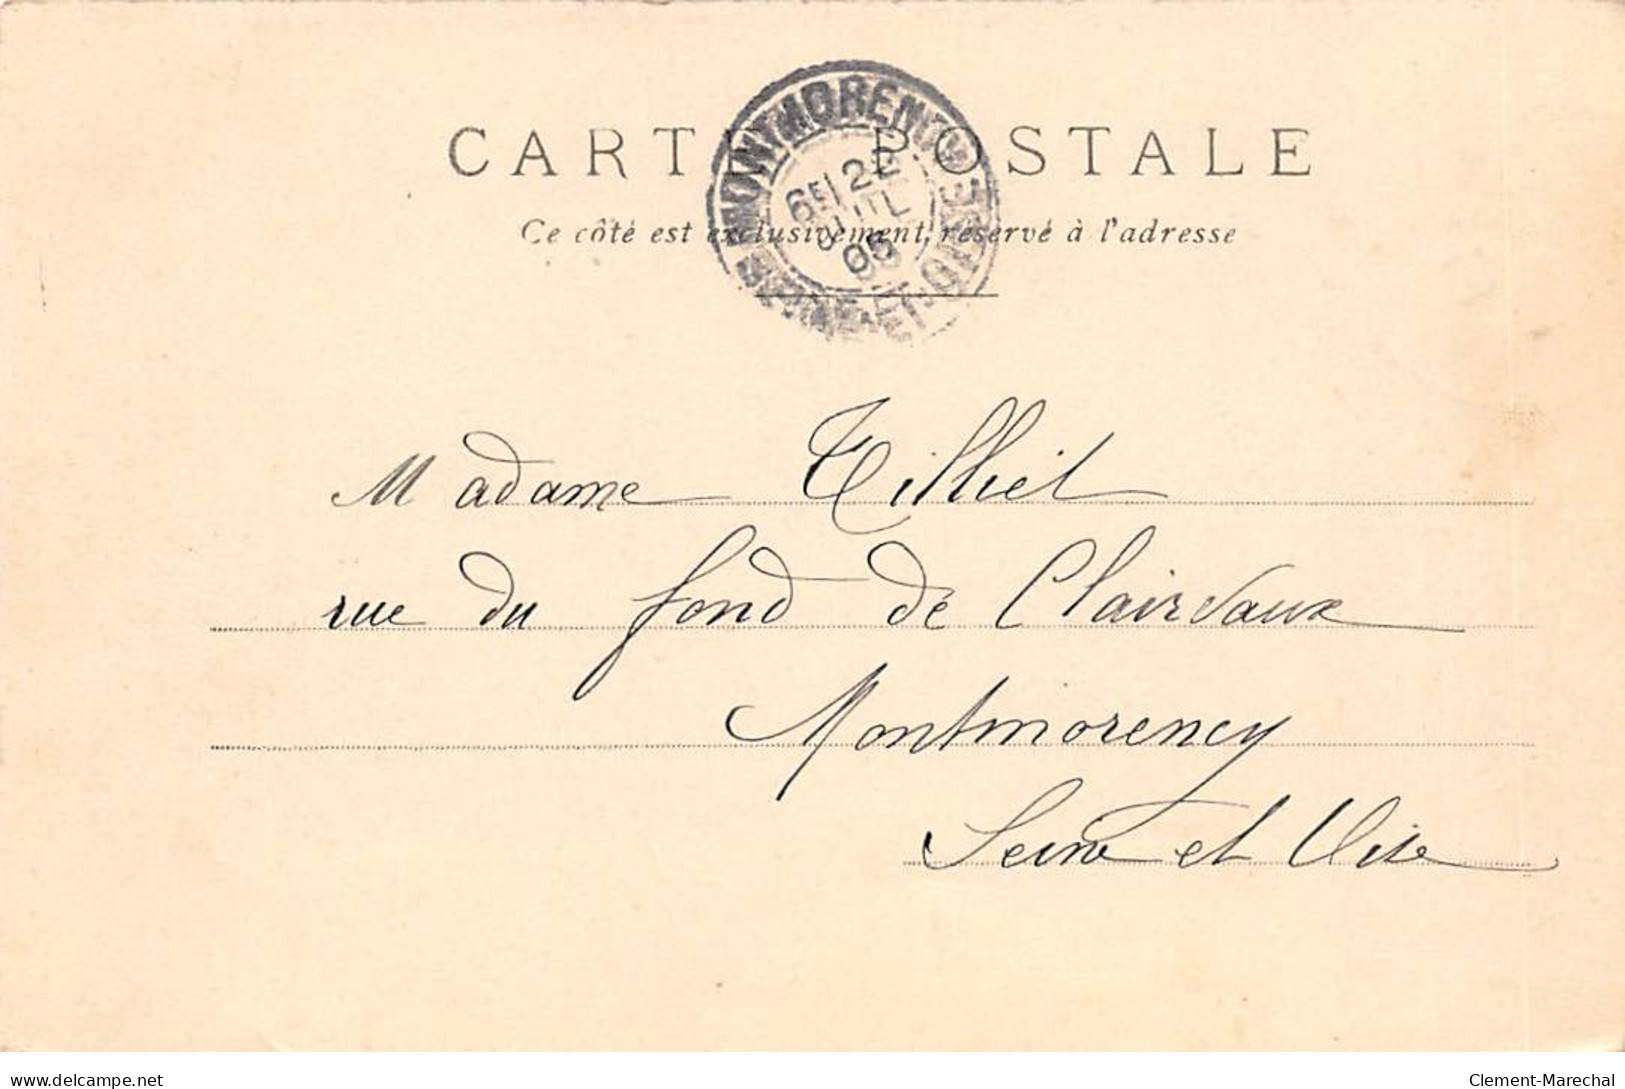 MONTMORENCY
6E 22
JUIL
05
SEINE-ET-OISE
CARTE POSTALE
Ce côté est exclusivement réservé à l'adresse
Madame Tilliet
rue du fond de Clairvaux
Montmorency
Seine et Oise
delcampe.net
Clement-Marechal